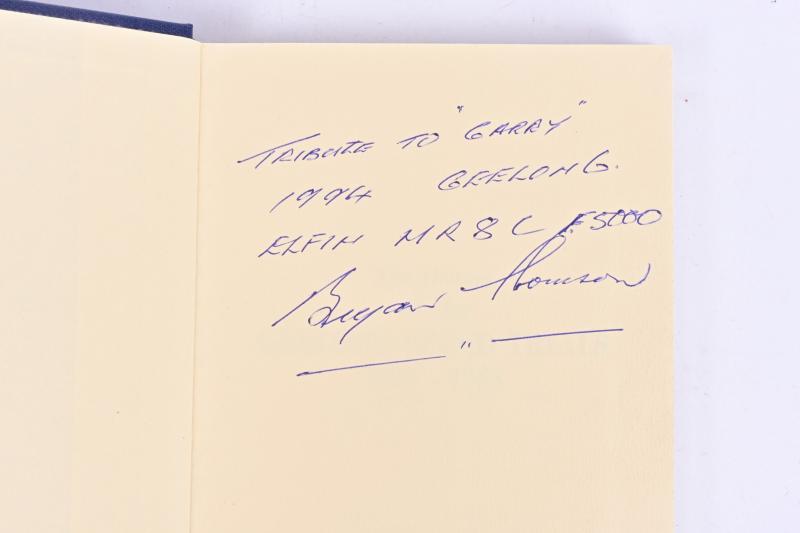 TRIBUTE TO "GARRY"
1994 GEELONG.
ELFIN MR8C F5000
Bryan Thomson
"